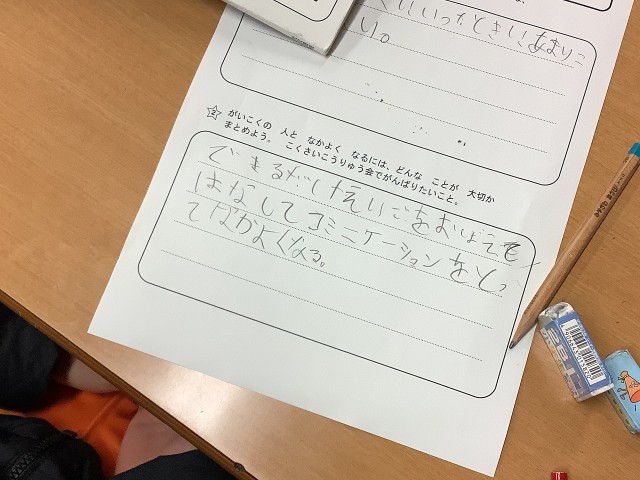 くいいったときいあまりこ
い。
☆2 がいこくの 人と なかよく なるには、どんな ことが 大切か
まとめよう。 こくさいこうりゅう会でがんばりたいこと。
できるだけえいごをおぼえて
はなしてコミニケーションをとっ
てなかよくなる。